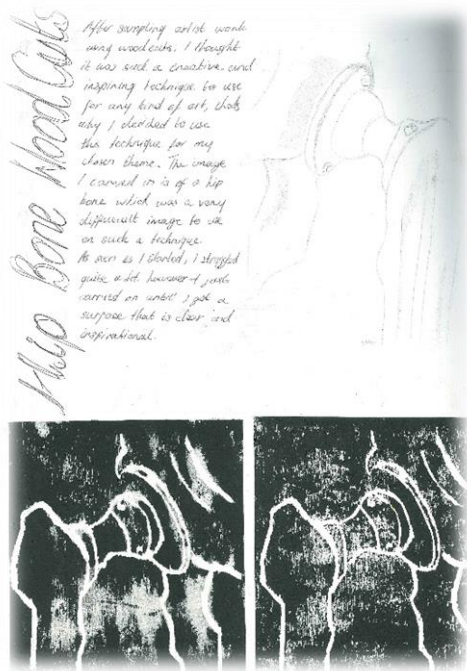 Hip Bone Wood Cuts
After sampling artist work
using woodcuts. I thought
it was such a creative and
inspiring technique to use
for any kind of art, thats
why I decided to use
this technique for my
chosen theme. The image
I carved in is of a hip
bone which was a very
difficult image to use
on such a technique.
As soon as I started, I struggled
quite a bit however I just
carried on until I got a
surpose that is clear and
inspirational.